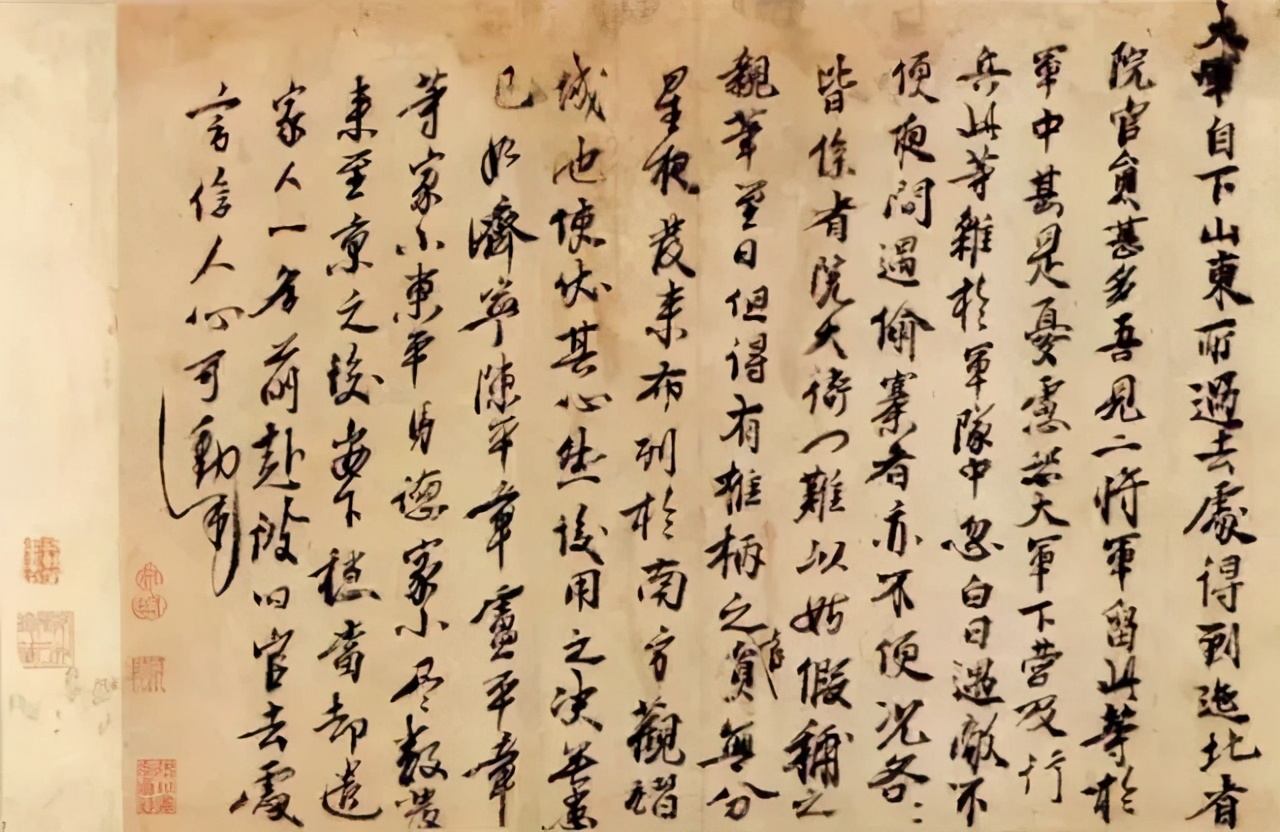 大軍自下山東所過去處得到迤北省
院官員甚多吾見二將軍留此等於
軍中甚是憂慮恐大軍下營及行
兵此等雜於軍隊中忽白日遇敵不
便夜間遇偷寨者亦不便況各〻
皆係省院大衙门難以姑假補之
親筆至日但得有權柄之官員無分
星夜發来布列於南方觀翫
城池使伏其心然後用之決無患
已如濟寧陳平章盧平章
等家小東平馬德家小尽數發
来至京之後安下穩當却遣
家人一名前赴彼旧官去處
言信人心可動